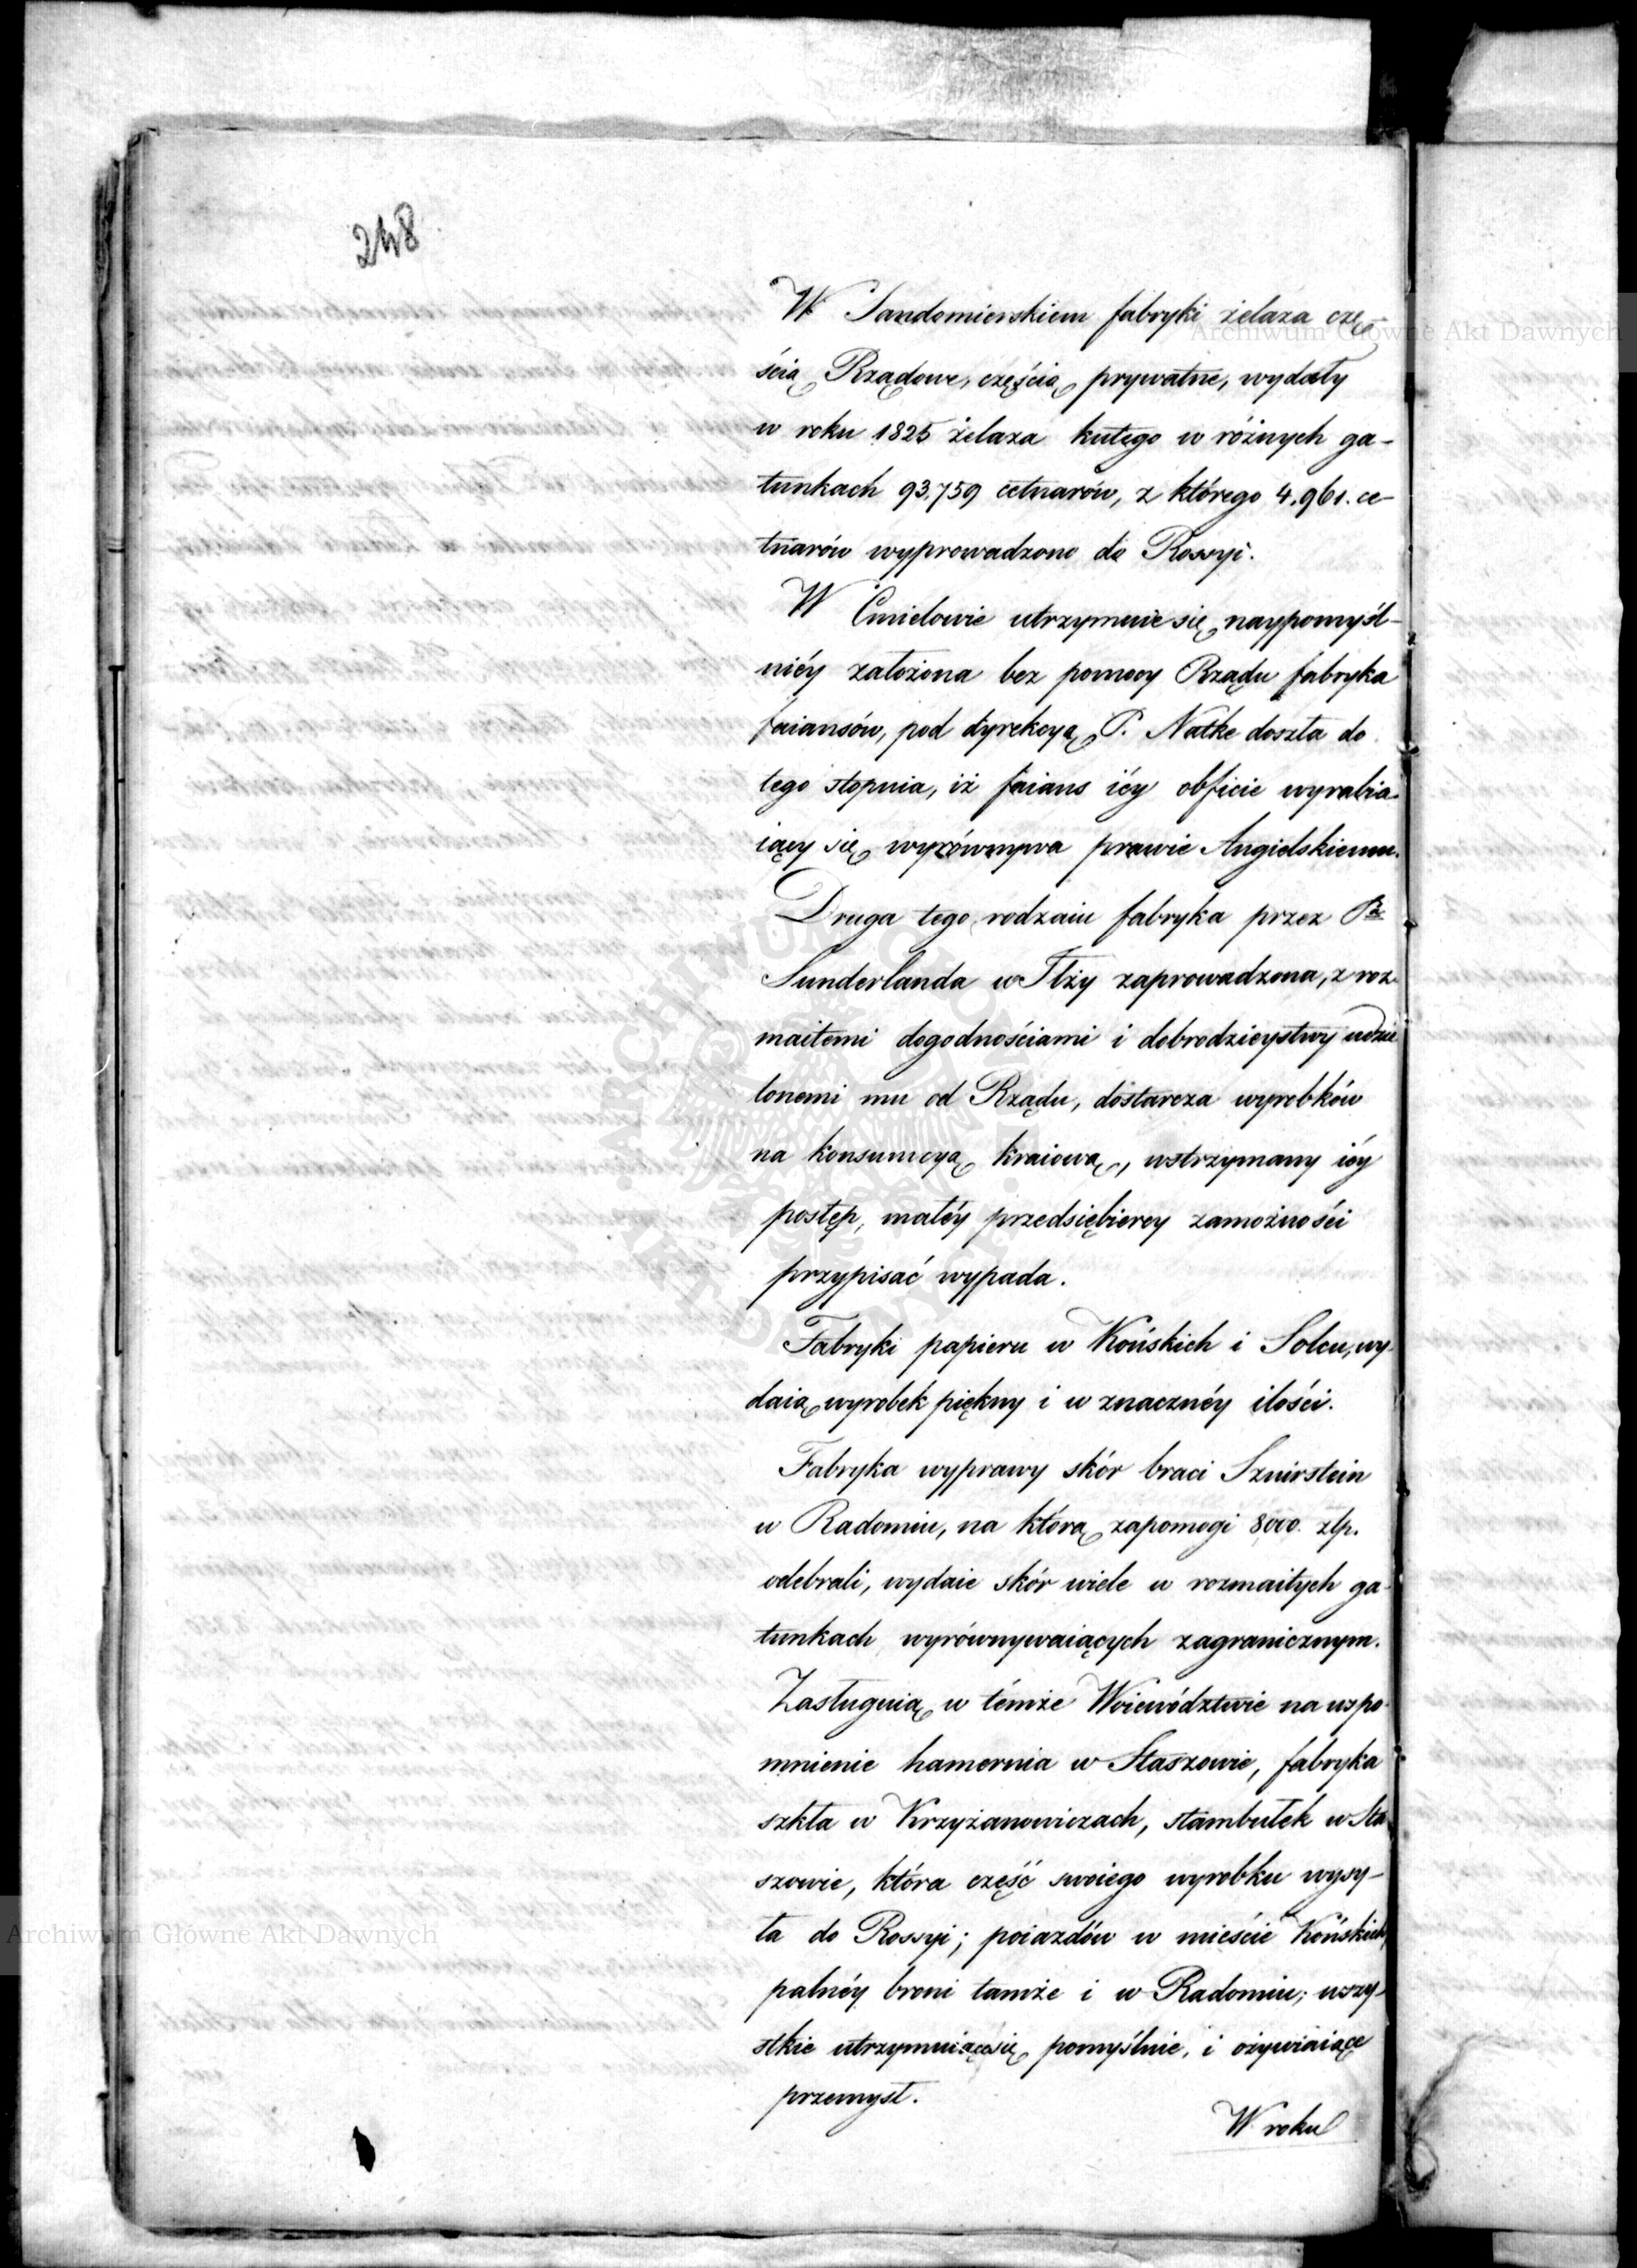 248
W Sandomierskiem fabryki żelaza czę-
ścią Rządowe, częścią prywatne, wydały
w roku 1825 żelaza kutego w różnych ga-
tunkach 93.759 cetnarów, z którego 4.961. ce-
tnarów wyprowadzono do Rossyi.
W Cmielowie utrzymuie się naypomyśl-
niéy założona bez pomocy Rządu fabryka
faiansów, pod dyrekcyą P. Natke doszła do
tego stopnia, iż faians iéy obficie wyrabia-
iący się wyrównywa prawie Angielskiemu.
Druga tego rodzaiu fabryka przez Pa
Sunderlanda w Iłży zaprowadzona, z roz-
maitemi dogodnościami i dobrodzieystwy udzie
lonemi mu od Rządu, dostarcza wyrobków
na konsumcyą kraiową, wstrzymany iéy
postęp, małéy przedsiębiercy zamożności
przypisać wypada.
Fabryki papieru w Końskich i Solcu, wy-
daią wyrobek piękny i w znacznéy ilości.
Fabryka wyprawy skór braci Sznirstein
w Radomiu, na którą zapomogi 8000. złp.
odebrali, wydaie skór wiele w rozmaitych ga-
tunkach wyrównywaiących zagranicznym.
Zasługuią w témże Woiewództwie na wspo-
mnienie hamernia w Staszowie, fabryka
szkła w Krzyżanowiczach, stambułek w Sta
szowie, która część swoiego wyrobku wysy-
ła do Rossyi; poiazdów w mieście Końskich,
palnéy broni tamże i w Radomiu; wszy-
stkie utrzymuiące się pomyślnie, i ożywiaiące
przemysł.
W roku
Archiwum Głowne Akt Dawnych
Archiwum Głowne Akt Dawnych
ARCHIWUM GŁÓWNE AKT DAWNYCH